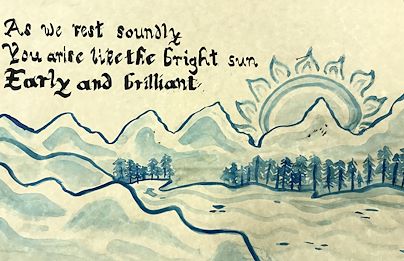 As we rest soundly
You arise like the bright sun
Early and brilliant